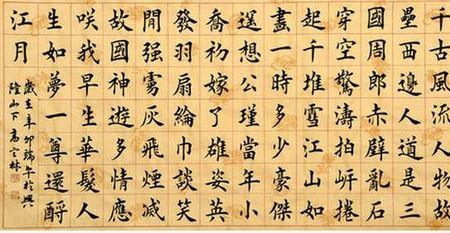 千古風流人物故
壘西邊人道是三
國周郎赤壁亂石
穿空驚濤拍岸捲
起千堆雪江山如
畫一時多少豪傑
遙想公瑾當年小
喬初嫁了雄姿英
發羽扇綸巾談笑
閒强虜灰飛煙滅
故國神遊多情應
咲我早生華髮人
生如夢一尊還酹
江月
歲在辛卯端午於興
隆山下高林